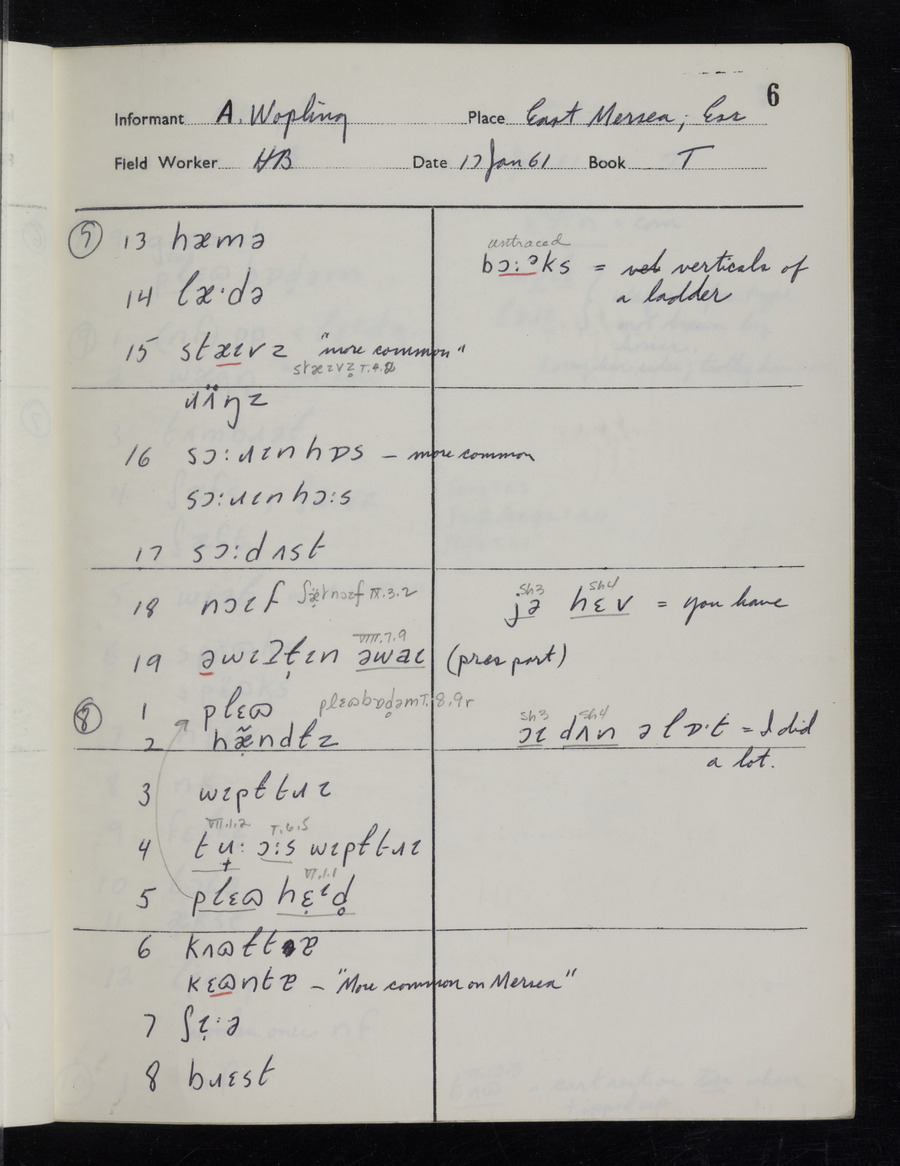 6
Informant A. Wopling Place East Mersea, Ess
Field Worker HB Date 17 Jan 61 Book I
⑦ 13 hæmə
14 łæ·də
15 stæɪvz "more common"
stæɪvz̥
ɹʌ̈ŋz
16 sɔ:ɹɪnhɒs – more common
sɔ:ɹɪnhɔ:s
17 sɔ:dʌst
18 nɔɪf
19 əwɪʔt̩ɪn əwaɪ (pres part)
VIII.7.9
⑧ 1 płɛɷ
2 hæ̃ndłz
3 wɪpłtɹɪ
4 tɹʉ: ɔ:s wɪpłtɹɪ
VII.1.2 I.6.5
5 płɛɷ hɛ̣ɪd̥
VI.1.1
6 kʌɷłtɐ
kɛɷntɐ – "More common on Mersea"
7 ʃɪ̣:ə
8 bɹɛst
untraced
bɔ:ᵊks = verticals of
a ladder
sh3 sh4
jə hɛv = you have
sh3 sh4
ɔɪ dʌn ə lɒ·t = I did
a lot.